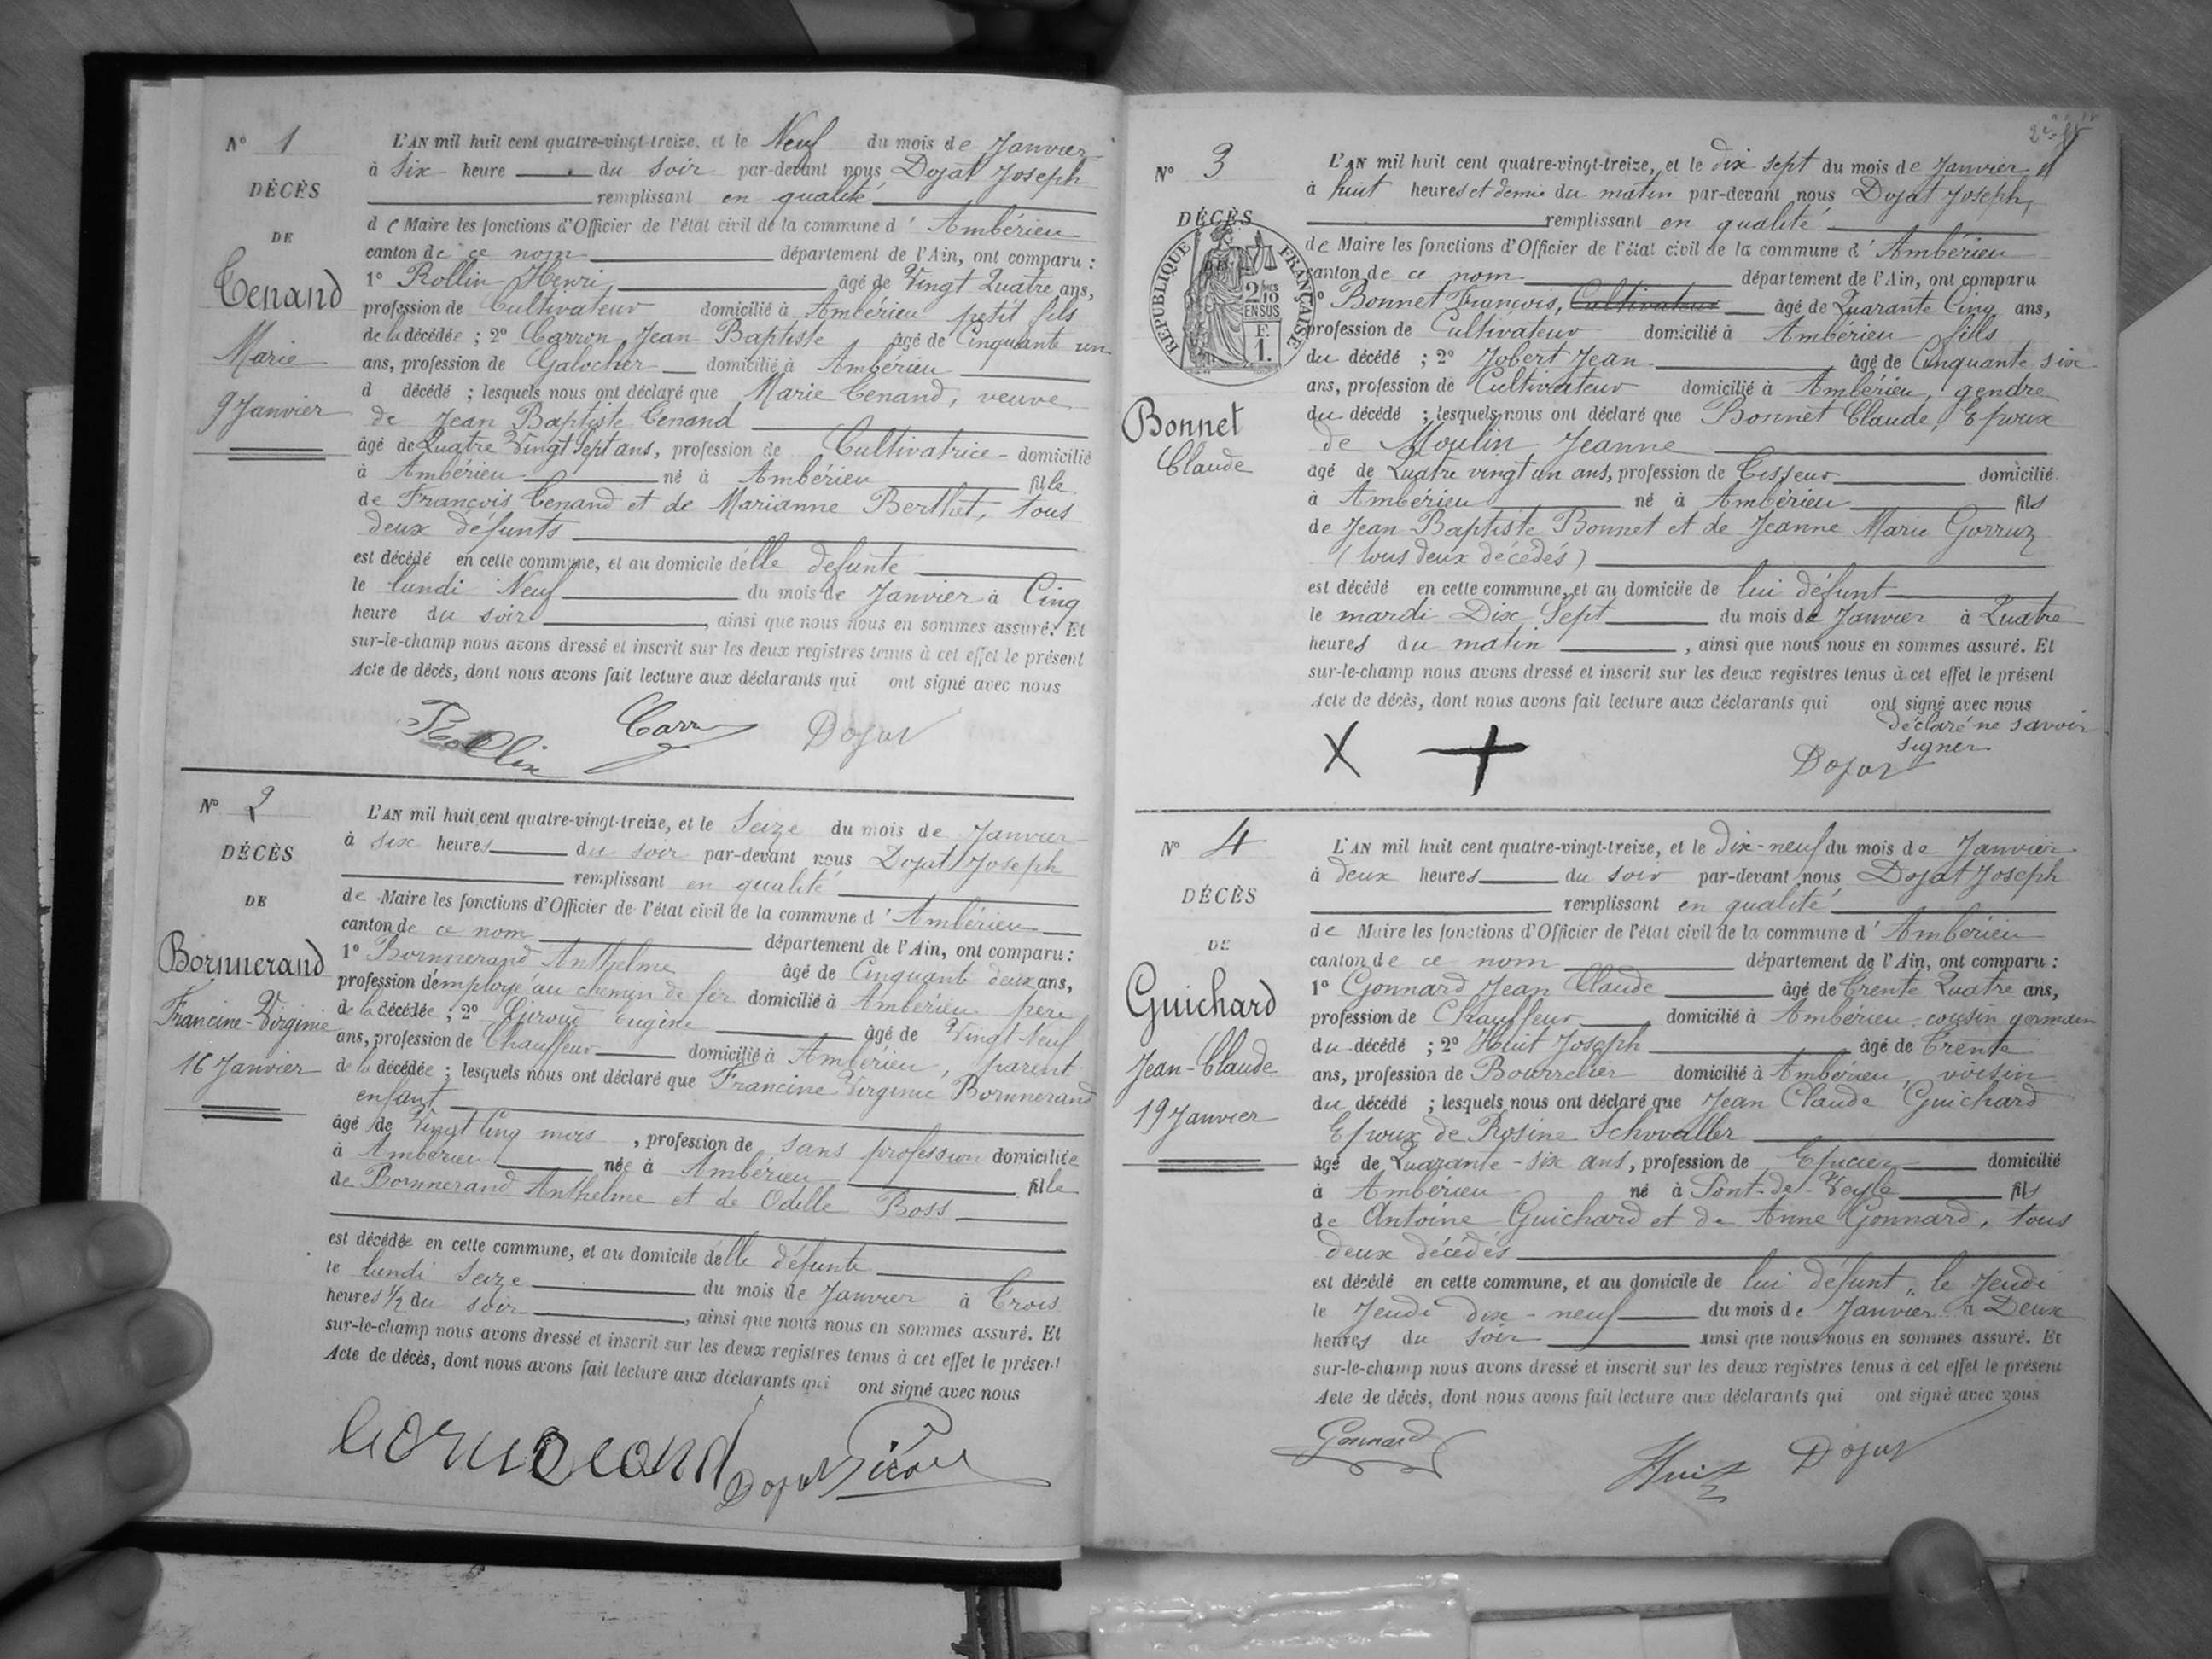 N° 1
DÉCÈS
DE
Tenand
Marie
9 Janvier
L'AN mil huit cent quatre-vingt-treize, et le Neuf du mois de Janvier
à six heure du soir par-devant nous Dojat Joseph
remplissant en qualité
de Maire les fonctions d'Officier de l'état civil de la commune d'Ambérieu
canton de ce nom département de l'Ain, ont comparu :
1° Rollin Henri âgé de Vingt Quatre ans,
profession de Cultivateur domicilié à Ambérieu petit fils
de la décédée ; 2° Carron Jean Baptiste âgé de Cinquante un
ans, profession de Galocher domicilié à Ambérieu
d décédé ; lesquels nous ont déclaré que Marie Tenand, veuve
de Jean Baptiste Tenand
âgé de Quatre Vingt Sept ans, profession de Cultivatrice domicilié
à Ambérieu né à Ambérieu fille
de François Tenand et de Marianne Berthet, tous
deux défunts
est décédé en cette commune, et au domicile d'elle défunte
le lundi Neuf du mois de Janvier à Cinq
heure du soir, ainsi que nous nous en sommes assuré. Et
sur-le-champ nous avons dressé et inscrit sur les deux registres tenus à cet effet le présent
Acte de décès, dont nous avons fait lecture aux déclarants qui ont signé avec nous
Rollin Carr Dojat
N° 2
DÉCÈS
DE
Bornnerand
Francine-Virginie
16 Janvier
L'AN mil huit cent quatre-vingt-treize, et le Seize du mois de Janvier
à six heures du soir par-devant nous Dojat Joseph
remplissant en qualité
de Maire les fonctions d'Officier de l'état civil de la commune d'Ambérieu
canton de ce nom département de l'Ain, ont comparu :
1° Bornnerand Anthelme âgé de Cinquante deux ans,
profession d'employé au chemin de fer domicilié à Ambérieu père
de la décédée ; 2° Giroud Eugène âgé de Vingt Neuf
ans, profession de Chauffeur domicilié à Ambérieu, parent
de la décédée ; lesquels nous ont déclaré que Francine Virginie Bornnerand
enfant
âgé de Vingt Cinq mois, profession de sans profession domiciliée
à Ambérieu née à Ambérieu fille
de Bornnerand Anthelme et de Odelle Ross
est décédée en cette commune, et au domicile d'elle défunte
le lundi seize du mois de Janvier à Trois
heures 1/2 du soir, ainsi que nous nous en sommes assuré. Et
sur-le-champ nous avons dressé et inscrit sur les deux registres tenus à cet effet le présent
Acte de décès, dont nous avons fait lecture aux déclarants qui ont signé avec nous
Dojat
N° 3
DÉCÈS
RÉPUBLIQUE FRANÇAISE
2/10 EN SUS
F. 1.
Bonnet
Claude
L'AN mil huit cent quatre-vingt-treize, et le dix sept du mois de Janvier
à huit heures et demie du matin par-devant nous Dojat Joseph,
remplissant en qualité
de Maire les fonctions d'Officier de l'état civil de la commune d'Ambérieu
canton de ce nom département de l'Ain, ont comparu
1° Bonnet François, Cultivateur âgé de Quarante Cinq ans,
profession de Cultivateur domicilié à Ambérieu fils
du décédé ; 2° Jobert Jean âgé de Cinquante six
ans, profession de Cultivateur domicilié à Ambérieu, gendre
du décédé ; lesquels nous ont déclaré que Bonnet Claude, Epoux
de Moulin Jeanne
âgé de Quatre vingt un ans, profession de Tisseur domicilié
à Ambérieu né à Ambérieu fils
de Jean Baptiste Bonnet et de Jeanne Marie Gorruz
(tous deux décédés)
est décédé en cette commune, et au domicile de lui défunt
le mardi Dix Sept du mois de Janvier à Quatre
heures du matin, ainsi que nous nous en sommes assuré. Et
sur-le-champ nous avons dressé et inscrit sur les deux registres tenus à cet effet le présent
Acte de décès, dont nous avons fait lecture aux déclarants qui ont signé avec nous
déclaré ne savoir
signer
X + Dojat
N° 4
DÉCÈS
DE
Guichard
Jean-Claude
19 Janvier
L'AN mil huit cent quatre-vingt-treize, et le dix-neuf du mois de Janvier
à deux heures du soir par-devant nous Dojat Joseph
remplissant en qualité
de Maire les fonctions d'Officier de l'état civil de la commune d'Ambérieu
canton de ce nom département de l'Ain, ont comparu :
1° Gonnard Jean Claude âgé de Trente Quatre ans,
profession de Chauffeur domicilié à Ambérieu, cousin germain
du décédé ; 2° Huit Joseph âgé de Trente
ans, profession de Bourrelier domicilié à Ambérieu, voisin
du décédé ; lesquels nous ont déclaré que Jean Claude Guichard
Epoux de Rosine Schwaller
âgé de Quarante-six ans, profession de Epicier domicilié
à Ambérieu né à Pont-de-Veyle fils
de Antoine Guichard et de Anne Gonnard, tous
deux décédés
est décédé en cette commune, et au domicile de lui défunt, le Jeudi
le Jeudi dix-neuf du mois de Janvier à Deux
heures du soir ainsi que nous nous en sommes assuré. Et
sur-le-champ nous avons dressé et inscrit sur les deux registres tenus à cet effet le présent
Acte de décès, dont nous avons fait lecture aux déclarants qui ont signé avec nous
Gonnard Huit Dojat